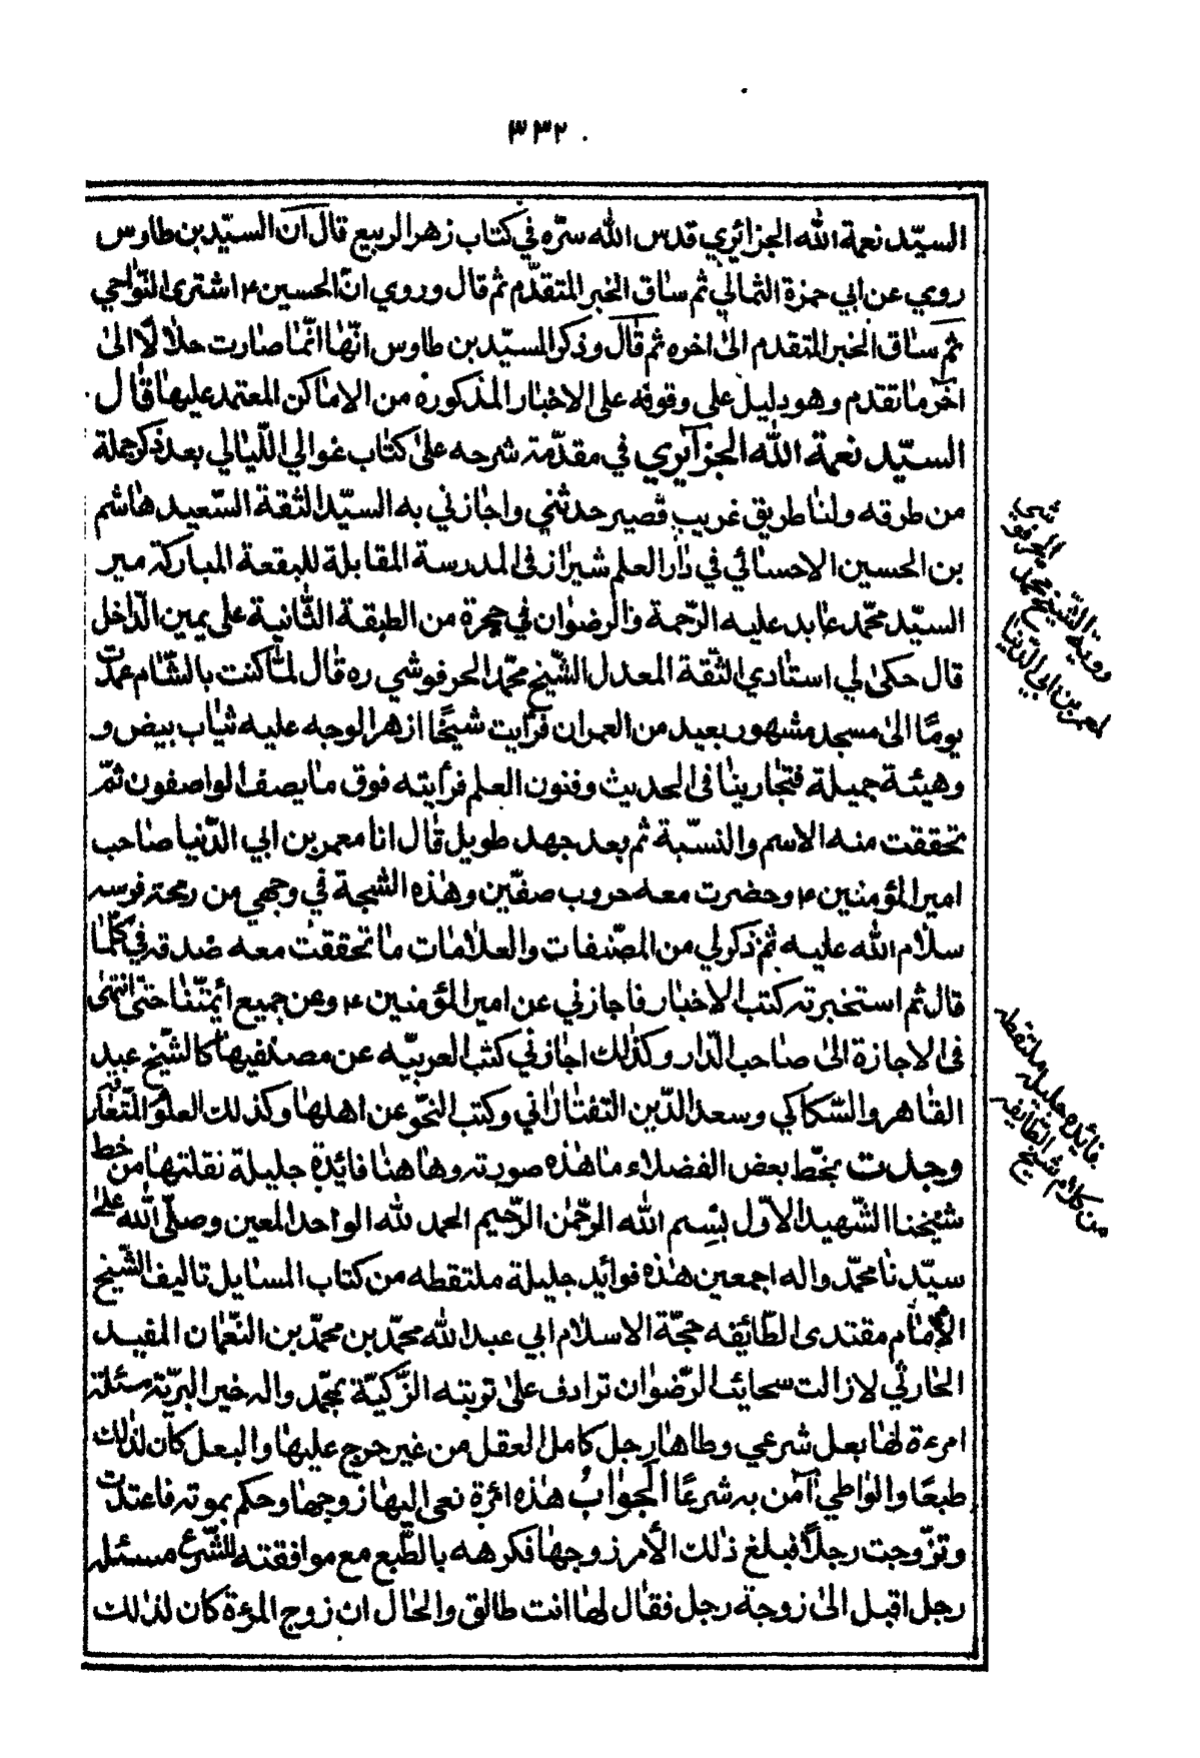 ٣٣٢
السيّد نعمة الله الجزائري قدس الله سرّه في كتاب زهر الربيع قال ان السيّد بن طاوس
روي عن ابي حمزة الثمالي ثم ساق الخبر المتقدّم ثم قال وروي انّ الحسين ٤ اشترى النّواحي
ثم ساق الخبر المتقدم الى اخره ثم قال وذكر السيّد بن طاوس انّها انّما صارت حلالًا الى
اخر ما تقدم وهو دليل على وقوفه على الاخبار المذكورة من الاماكن المعتمد عليها قال
السيّد نعمة الله الجزائري في مقدّمة شرحه على كتاب غوالي اللّيالي بعد ذكر جملة
من طرقه ولنا طريق غريب قصير حدثني واجازني به السيّد الثقة السّعيد هاشم
بن الحسين الاحسائي في دار العلم شيراز فى المدرسة المقابلة للبقعة المباركة مير
السيّد محمّد عابد عليه الرّحمة والرضوان في حجرة من الطبقة الثّانية على يمين الدّاخل
قال حكى لي استادي الثّقة المعدل الشّيخ محمّد الحرفوشي ره قال لمّا كنت بالشّام عمدت
يومًا الى مسجد مشهور بعيد من العمران فرأيت شيخًا ازهر الوجه عليه ثياب بيض و
وهيئة جميلة فتجارينا فى الحديث وفنون العلم فرأيته فوق ما يصف الواصفون ثمّ
تحققت منه الاسم والنسّبة ثم بعد جهد طويل قال انا معمر بن ابي الدّنيا صاحب
امير المؤمنين ٤ وحضرت معه حروب صفّين وهذه الشّجة في وجهي من رمحة فرسه
سلام الله عليه ثم ذكر لي من الصّفات والعلامات ما تحققت معه صدقه في كلّما
قال ثم استخبرته كتب الاخبار فاجازني عن امير المؤمنين ٤ وعن جميع ائمّتنا حتى انتهى
فى الاجازة الى صاحب الدّار وكذلك اجازني كتب العربيّه عن مصنّفيها كالشّيخ عبد
القاهر والسّكاكي وسعد الدّين التفتازاني وكتب النّحو عن اهلها وكذلك العلوم المتعارفة
وجدت بخّط بعض الفضلاء ما هذه صورته وهاهنا فايدة جليلة نقلتها من خط
شيخنا الشّهيد الاوّل بسم الله الرّحمن الرّحيم الحمد لله الواحد المعين وصلّى الله على
سيّدنا محمّد واله اجمعين هذه فوائد جليلة ملتقطه من كتاب المسايل تاليف الشّيخ
الامام مقتدى الطّائفه حجّة الاسلام ابي عبد الله محمّد بن محمّد بن النّعمان المفيد
الحارثي لازالت سحائب الرّضوان ترادف على تربته الزّكيّة بمحمّد واله خير البريّة مسئلة
امرءة لها بعل شرعي وطاها رجل كامل العقل من غير حرج عليها والبعل كان لذلك
طبعًا والواطي آمن به شرعًا الجواب هذه امرءة نعى اليها زوجها وحكم بموته فاعتدت
وتزّوجت رجلًا فبلغ ذلك الأمر زوجها فكرهه بالطّبع مع موافقته للشّرع مسئله
رجل اقبل الى زوجة رجل فقال لها انت طالق والحال ان زوج المرءة كان لذلك
روية الشّيخ محمد الحرفوشي
لمعمر بن ابي الدّنيا
فائده جليله ملتقطه
من كلام شيخ الطّايفه